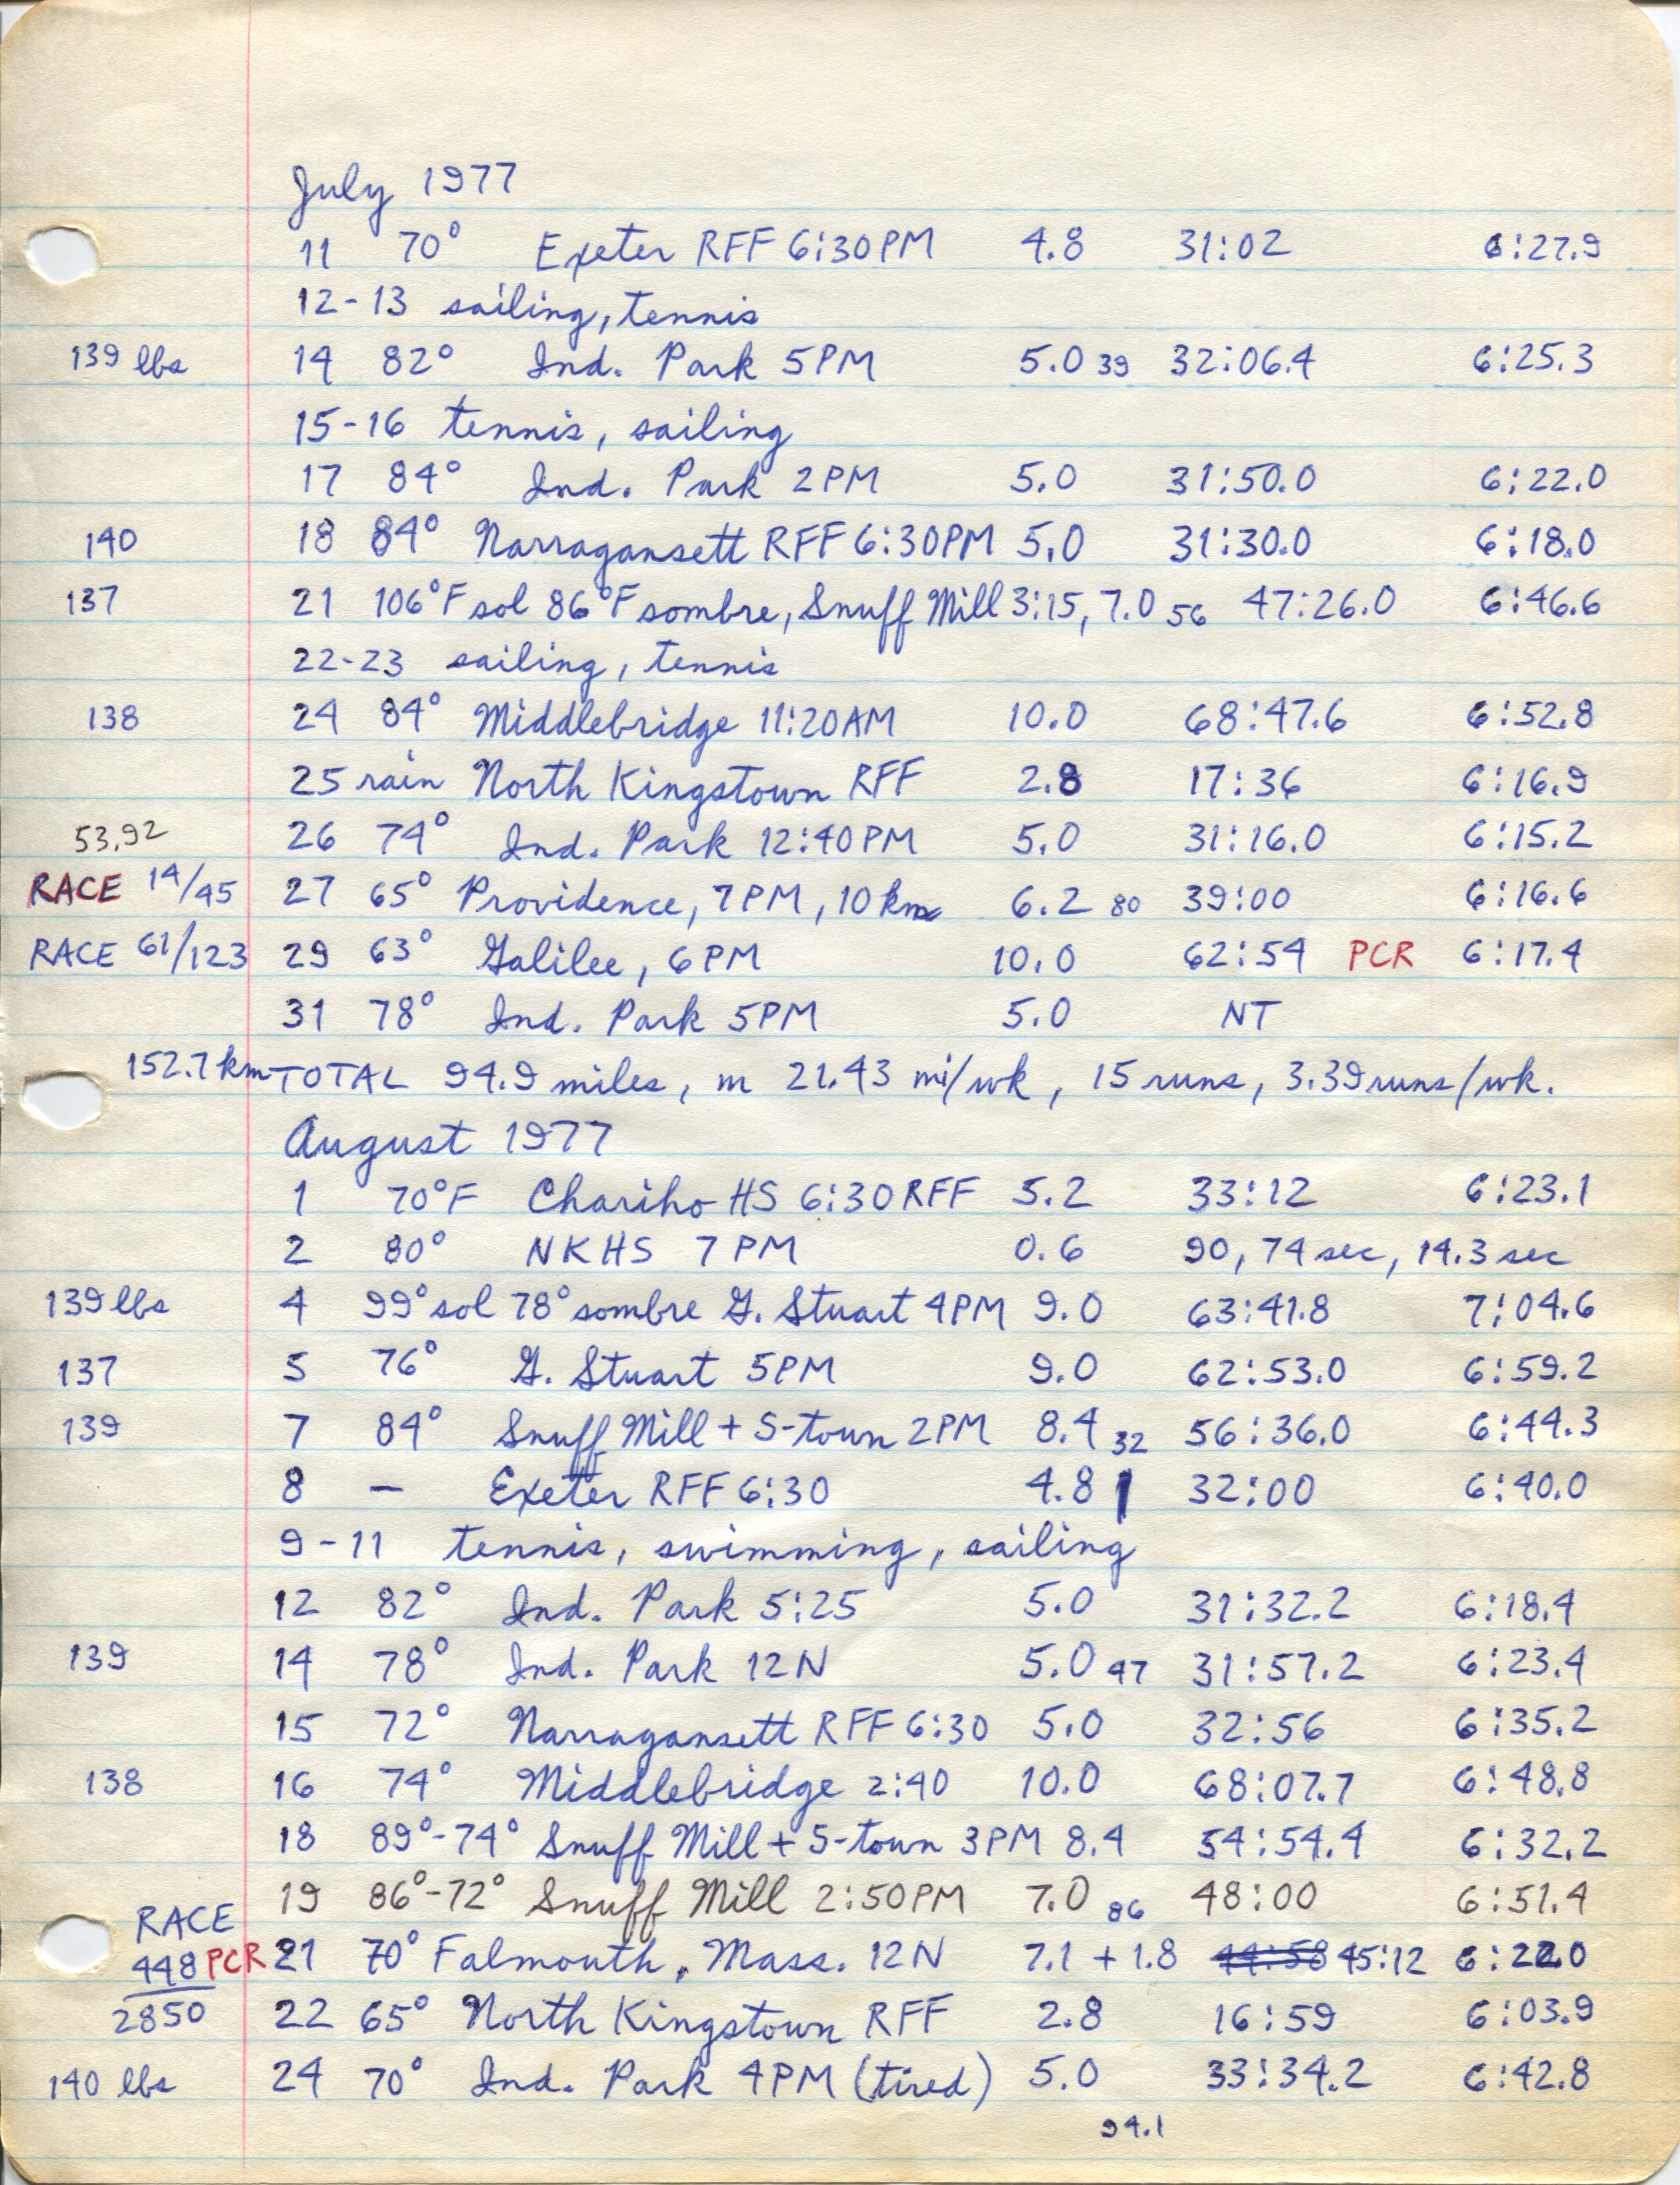 July 1977
11 70° Exeter RFF 6:30PM 4.8 31:02 6:27.9
12-13 sailing, tennis
139 lbs 14 82° Ind. Park 5PM 5.0 39 32:06.4 6:25.3
15-16 tennis, sailing
17 84° Ind. Park 2PM 5.0 31:50.0 6:22.0
140 18 84° Narragansett RFF 6:30PM 5.0 31:30.0 6:18.0
137 21 106°F sol 86°F sombre, Snuff Mill 3:15, 7.0 56 47:26.0 6:46.6
22-23 sailing, tennis
138 24 84° Middlebridge 11:20AM 10.0 68:47.6 6:52.8
25 rain North Kingstown RFF 2.8 17:36 6:16.9
53.92 26 74° Ind. Park 12:40PM 5.0 31:16.0 6:15.2
RACE 14/45 27 65° Providence, 7PM, 10 km 6.2 80 39:00 6:16.6
RACE 61/123 29 63° Galilee, 6PM 10.0 62:54 PCR 6:17.4
31 78° Ind. Park 5PM 5.0 NT
152.7 km TOTAL 94.9 miles, m 21.43 mi/wk, 15 runs, 3.39 runs/wk.
August 1977
1 70°F Chariho HS 6:30 RFF 5.2 33:12 6:23.1
2 80° NKHS 7PM 0.6 90, 74 sec, 14.3 sec
139 lbs 4 99° sol 78° sombre G. Stuart 4PM 9.0 63:41.8 7:04.6
137 5 76° G. Stuart 5PM 9.0 62:53.0 6:59.2
139 7 84° Snuff Mill + S-town 2PM 8.4 32 56:36.0 6:44.3
8 — Exeter RFF 6:30 4.8 32:00 6:40.0
9-11 tennis, swimming, sailing
12 82° Ind. Park 5:25 5.0 31:32.2 6:18.4
139 14 78° Ind. Park 12N 5.0 47 31:57.2 6:23.4
15 72° Narragansett RFF 6:30 5.0 32:56 6:35.2
138 16 74° Middlebridge 2:40 10.0 68:07.7 6:48.8
18 89°-74° Snuff Mill + S-town 3PM 8.4 54:54.4 6:32.2
19 86°-72° Snuff Mill 2:50PM 7.0 86 48:00 6:51.4
RACE
448 PCR 21 70° Falmouth, Mass. 12N 7.1 + 1.8 44:58 45:12 6:22.0
2850 22 65° North Kingstown RFF 2.8 16:59 6:03.9
140 lbs 24 70° Ind. Park 4PM (tired) 5.0 33:34.2 6:42.8
94.1